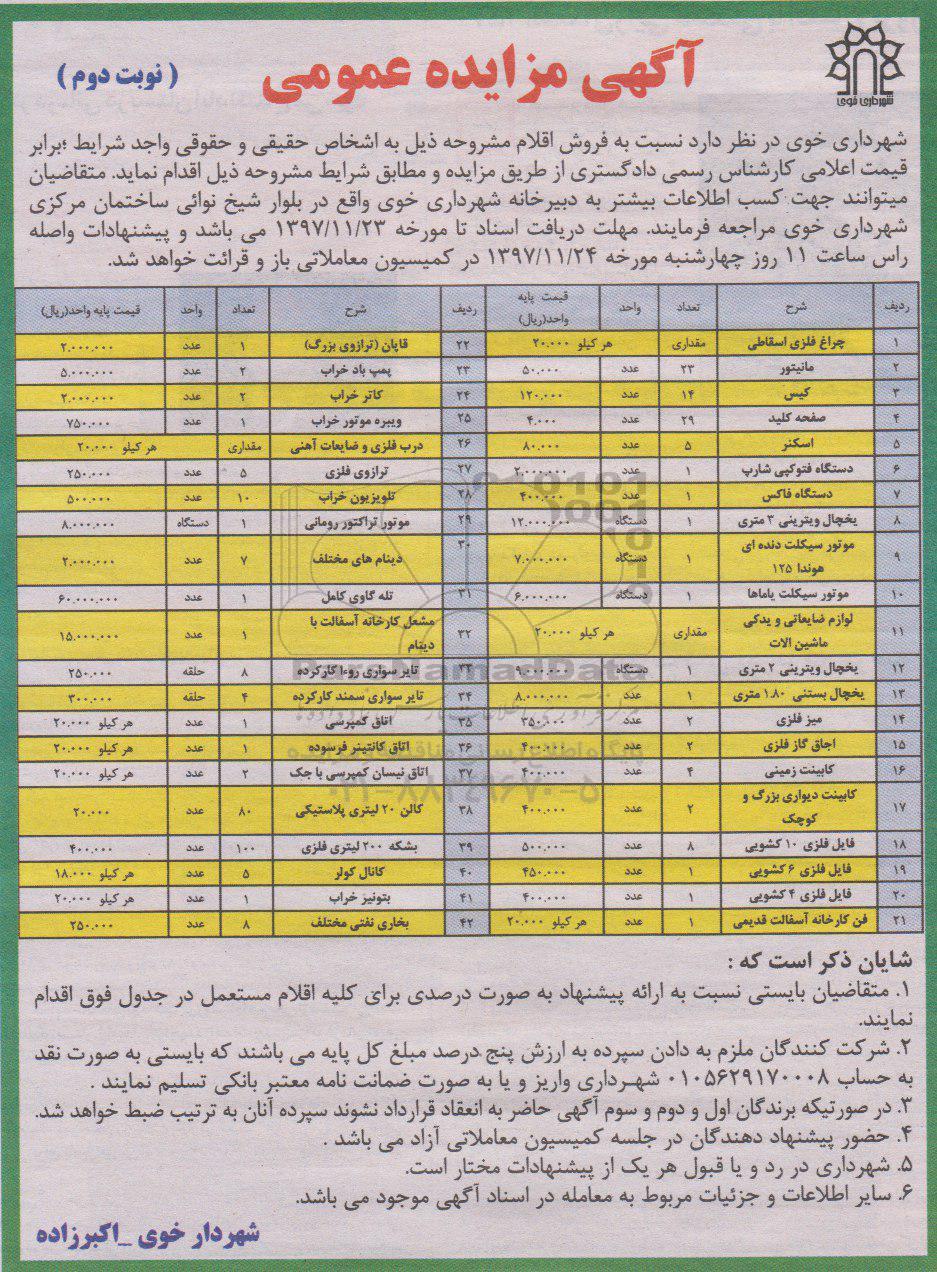 شهرداری خوی
آگهی مزایده عمومی
( نوبت دوم )
شهرداری خوی در نظر دارد نسبت به فروش اقلام مشروحه ذیل به اشخاص حقیقی و حقوقی واجد شرایط ؛برابر
قیمت اعلامی کارشناس رسمی دادگستری از طریق مزایده و مطابق شرایط مشروحه ذیل اقدام نماید. متقاضیان
میتوانند جهت کسب اطلاعات بیشتر به دبیرخانه شهرداری خوی واقع در بلوار شیخ نوائی ساختمان مرکزی
شهرداری خوی مراجعه فرمایند. مهلت دریافت اسناد تا مورخه ۱۳۹۷/۱۱/۲۳ می باشد و پیشنهادات واصله
راس ساعت ۱۱ روز چهارشنبه مورخه ۱۳۹۷/۱۱/۲۴ در کمیسیون معاملاتی باز و قرائت خواهد شد.
ردیف شرح تعداد واحد قیمت پایه واحد(ریال) ردیف شرح تعداد واحد قیمت پایه واحد(ریال)
۱ چراغ فلزی اسقاطی مقداری هر کیلو ۲۰.۰۰۰ ۲۲ قاپان (ترازوی بزرگ) ۱ عدد ۲.۰۰۰.۰۰۰
۲ مانیتور ۲۳ عدد ۵۰.۰۰۰ ۲۳ پمپ باد خراب ۲ عدد ۵.۰۰۰.۰۰۰
۳ کیس ۱۴ عدد ۱۲۰.۰۰۰ ۲۴ کاتر خراب ۲ عدد ۲.۰۰۰.۰۰۰
۴ صفحه کلید ۲۹ عدد ۴.۰۰۰ ۲۵ ویبره موتور خراب ۱ عدد ۷۵۰.۰۰۰
۵ اسکنر ۵ عدد ۸۰.۰۰۰ ۲۶ درب فلزی و ضایعات آهنی مقداری هر کیلو ۲۰.۰۰۰
۶ دستگاه فتوکپی شارپ ۱ عدد ۲.۰۰۰.۰۰۰ ۲۷ ترازوی فلزی ۵ عدد ۲۵۰.۰۰۰
۷ دستگاه فاکس ۱ عدد ۴۰۰.۰۰۰ ۲۸ تلویزیون خراب ۱۰ عدد ۵۰۰.۰۰۰
۸ یخچال ویترینی ۳ متری ۱ دستگاه ۱۲.۰۰۰.۰۰۰ ۲۹ موتور تراکتور رومانی ۱ دستگاه ۸.۰۰۰.۰۰۰
۹ موتور سیکلت دنده ای هوندا ۱۲۵ ۱ دستگاه ۷.۰۰۰.۰۰۰ ۳۰ دینام های مختلف ۷ عدد ۲.۰۰۰.۰۰۰
۱۰ موتور سیکلت یاماها ۱ دستگاه ۶.۰۰۰.۰۰۰ ۳۱ تله گاوی کامل ۱ عدد ۶۰.۰۰۰.۰۰۰
۱۱ لوازم ضایعاتی و یدکی ماشین الات مقداری هر کیلو ۲۰.۰۰۰ ۳۲ مشعل کارخانه آسفالت با دینام ۱ عدد ۱۵.۰۰۰.۰۰۰
۱۲ یخچال ویترینی ۲ متری ۱ دستگاه ۹.۰۰۰.۰۰۰ ۳۳ تایر سواری روءا کارکرده ۸ حلقه ۲۵۰.۰۰۰
۱۳ یخچال بستنی ۱.۸۰ متری ۱ عدد ۸.۰۰۰.۰۰۰ ۳۴ تایر سواری سمند کارکرده ۴ حلقه ۳۰۰.۰۰۰
۱۴ میز فلزی ۲ عدد ۳۵۰.۰۰۰ ۳۵ اتاق کمپرسی ۱ عدد هر کیلو ۲۰.۰۰۰
۱۵ اجاق گاز فلزی ۲ عدد ۴۰۰.۰۰۰ ۳۶ اتاق کانتینر فرسوده ۱ عدد هر کیلو ۲۰.۰۰۰
۱۶ کابینت زمینی ۴ عدد ۴۰۰.۰۰۰ ۳۷ اتاق نیسان کمپرسی با جک ۲ عدد هر کیلو ۲۰.۰۰۰
۱۷ کابینت دیواری بزرگ و کوچک ۲ عدد ۴۰۰.۰۰۰ ۳۸ کالن ۲۰ لیتری پلاستیکی ۸۰ عدد ۲۰.۰۰۰
۱۸ فایل فلزی ۱۰ کشویی ۸ عدد ۵۰۰.۰۰۰ ۳۹ بشکه ۲۰۰ لیتری فلزی ۱۰۰ عدد ۴۰۰.۰۰۰
۱۹ فایل فلزی ۶ کشویی ۱ عدد ۴۵۰.۰۰۰ ۴۰ کانال کولر ۵ عدد هر کیلو ۱۸.۰۰۰
۲۰ فایل فلزی ۴ کشویی ۱ عدد ۴۰۰.۰۰۰ ۴۱ بتونیز خراب ۱ عدد هر کیلو ۲۰.۰۰۰
۲۱ فن کارخانه آسفالت قدیمی ۱ عدد هر کیلو ۲۰.۰۰۰ ۴۲ بخاری نفتی مختلف ۸ عدد ۲۵۰.۰۰۰
ParsNamadData
۰۲۱-۸۸۳۴۹۶۷۰-۵
شایان ذکر است که :
۱. متقاضیان بایستی نسبت به ارائه پیشنهاد به صورت درصدی برای کلیه اقلام مستعمل در جدول فوق اقدام
نمایند.
۲. شرکت کنندگان ملزم به دادن سپرده به ارزش پنج درصد مبلغ کل پایه می باشند که بایستی به صورت نقد
به حساب ۰۱۰۵۶۲۹۱۷۰۰۰۸ شهرداری واریز و یا به صورت ضمانت نامه معتبر بانکی تسلیم نمایند .
۳. در صورتیکه برندگان اول و دوم و سوم آگهی حاضر به انعقاد قرارداد نشوند سپرده آنان به ترتیب ضبط خواهد شد.
۴. حضور پیشنهاد دهندگان در جلسه کمیسیون معاملاتی آزاد می باشد .
۵. شهرداری در رد و یا قبول هر یک از پیشنهادات مختار است.
۶. سایر اطلاعات و جزئیات مربوط به معامله در اسناد آگهی موجود می باشد.
شهردار خوی _اکبرزاده